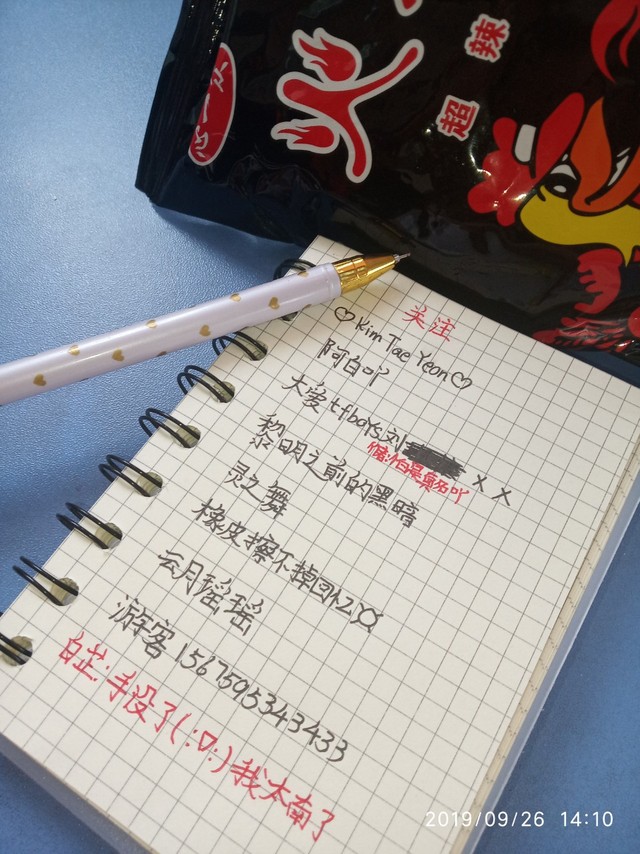 火
超辣
关注
♡Kim Tae Yeon♡
阿白吖
大爱tfboys刘 xx
黎明之前的黑暗
灵之舞
橡皮擦不掉回忆
云月瑶瑶
游客1567595343433
白芷:手没了(:▽:)我太南了
2019/09/26 14:10